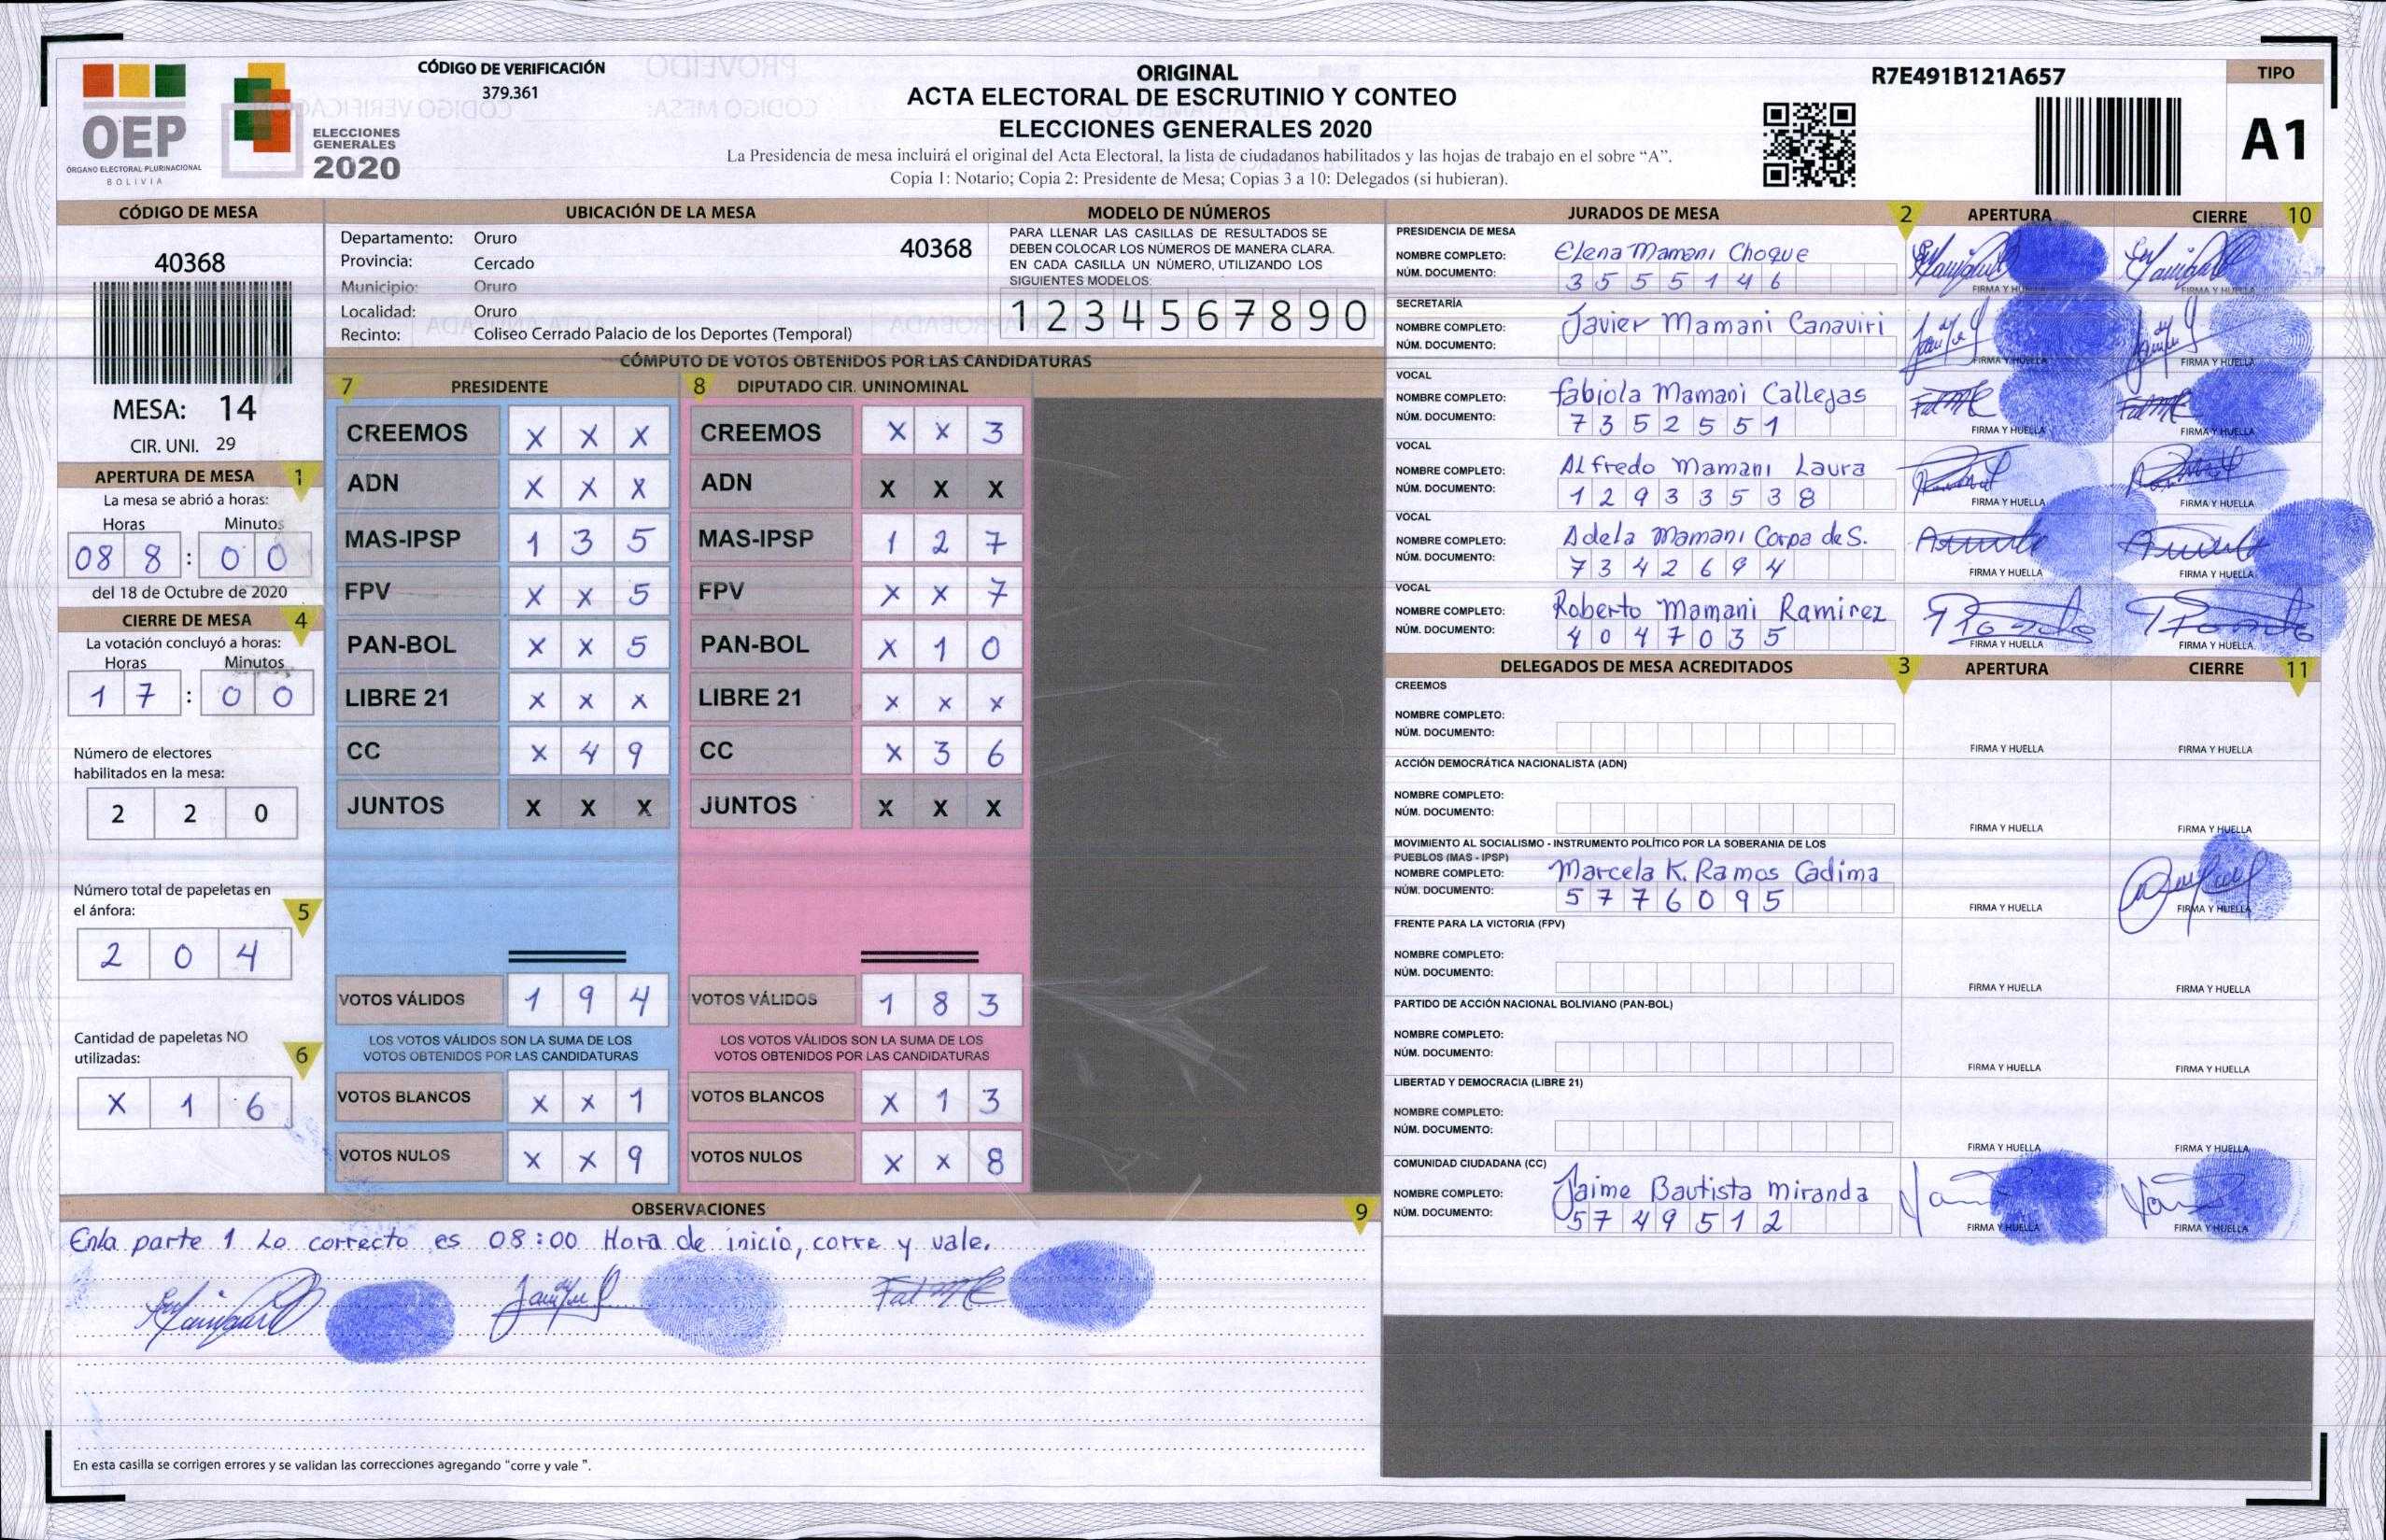 OEP
ÓRGANO ELECTORAL PLURINACIONAL
BOLIVIA
ELECCIONES
GENERALES
2020
CÓDIGO DE VERIFICACIÓN
379.361
ORIGINAL
ACTA ELECTORAL DE ESCRUTINIO Y CONTEO
ELECCIONES GENERALES 2020
La Presidencia de mesa incluirá el original del Acta Electoral, la lista de ciudadanos habilitados y las hojas de trabajo en el sobre “A”.
Copia 1: Notario; Copia 2: Presidente de Mesa; Copias 3 a 10: Delegados (si hubieran).
R7E491B121A657
TIPO
A1
CÓDIGO DE MESA
40368
MESA: 14
CIR. UNI. 29
APERTURA DE MESA 1
La mesa se abrió a horas:
Horas Minutos
08 8 : 0 0
del 18 de Octubre de 2020
CIERRE DE MESA 4
La votación concluyó a horas:
Horas Minutos
1 7 : 0 0
Número de electores
habilitados en la mesa:
2 2 0
Número total de papeletas en
el ánfora: 5
2 0 4
Cantidad de papeletas NO
utilizadas: 6
X 1 6
UBICACIÓN DE LA MESA
Departamento: Oruro
Provincia: Cercado
Municipio: Oruro
Localidad: Oruro
Recinto: Coliseo Cerrado Palacio de los Deportes (Temporal)
40368
MODELO DE NÚMEROS
PARA LLENAR LAS CASILLAS DE RESULTADOS SE
DEBEN COLOCAR LOS NÚMEROS DE MANERA CLARA.
EN CADA CASILLA UN NÚMERO, UTILIZANDO LOS
SIGUIENTES MODELOS:
1 2 3 4 5 6 7 8 9 0
CÓMPUTO DE VOTOS OBTENIDOS POR LAS CANDIDATURAS
7 PRESIDENTE
CREEMOS X X X
ADN X X X
MAS-IPSP 1 3 5
FPV X X 5
PAN-BOL X X 5
LIBRE 21 X X X
CC X 4 9
JUNTOS X X X
VOTOS VÁLIDOS 1 9 4
LOS VOTOS VÁLIDOS SON LA SUMA DE LOS
VOTOS OBTENIDOS POR LAS CANDIDATURAS
VOTOS BLANCOS X X 1
VOTOS NULOS X X 9
8 DIPUTADO CIR. UNINOMINAL
CREEMOS X X 3
ADN X X X
MAS-IPSP 1 2 7
FPV X X 7
PAN-BOL X 1 0
LIBRE 21 X X X
CC X 3 6
JUNTOS X X X
VOTOS VÁLIDOS 1 8 3
LOS VOTOS VÁLIDOS SON LA SUMA DE LOS
VOTOS OBTENIDOS POR LAS CANDIDATURAS
VOTOS BLANCOS X 1 3
VOTOS NULOS X X 8
OBSERVACIONES 9
Enla parte 1 Lo correcto es 08:00 Hora de inicio, corre y vale.
En esta casilla se corrigen errores y se validan las correcciones agregando “corre y vale ”.
JURADOS DE MESA 2 APERTURA CIERRE 10
PRESIDENCIA DE MESA
NOMBRE COMPLETO: Elena Mamani Choque
NÚM. DOCUMENTO: 3555146
FIRMA Y HUELLA FIRMA Y HUELLA
SECRETARÍA
NOMBRE COMPLETO: Javier Mamani Canaviri
NÚM. DOCUMENTO:
FIRMA Y HUELLA FIRMA Y HUELLA
VOCAL
NOMBRE COMPLETO: fabiola Mamani Callejas
NÚM. DOCUMENTO: 7352551
FIRMA Y HUELLA FIRMA Y HUELLA
VOCAL
NOMBRE COMPLETO: ALfredo Mamani Laura
NÚM. DOCUMENTO: 12933538
FIRMA Y HUELLA FIRMA Y HUELLA
VOCAL
NOMBRE COMPLETO: Adela Mamani Corpa de S.
NÚM. DOCUMENTO: 7342694
FIRMA Y HUELLA FIRMA Y HUELLA
VOCAL
NOMBRE COMPLETO: Roberto Mamani Ramirez
NÚM. DOCUMENTO: 4047035
FIRMA Y HUELLA FIRMA Y HUELLA
DELEGADOS DE MESA ACREDITADOS 3 APERTURA CIERRE 11
CREEMOS
NOMBRE COMPLETO:
NÚM. DOCUMENTO:
FIRMA Y HUELLA FIRMA Y HUELLA
ACCIÓN DEMOCRÁTICA NACIONALISTA (ADN)
NOMBRE COMPLETO:
NÚM. DOCUMENTO:
FIRMA Y HUELLA FIRMA Y HUELLA
MOVIMIENTO AL SOCIALISMO - INSTRUMENTO POLÍTICO POR LA SOBERANIA DE LOS
PUEBLOS (MAS - IPSP)
NOMBRE COMPLETO: Marcela K. Ramos Cadima
NÚM. DOCUMENTO: 5776095
FIRMA Y HUELLA FIRMA Y HUELLA
FRENTE PARA LA VICTORIA (FPV)
NOMBRE COMPLETO:
NÚM. DOCUMENTO:
FIRMA Y HUELLA FIRMA Y HUELLA
PARTIDO DE ACCIÓN NACIONAL BOLIVIANO (PAN-BOL)
NOMBRE COMPLETO:
NÚM. DOCUMENTO:
FIRMA Y HUELLA FIRMA Y HUELLA
LIBERTAD Y DEMOCRACIA (LIBRE 21)
NOMBRE COMPLETO:
NÚM. DOCUMENTO:
FIRMA Y HUELLA FIRMA Y HUELLA
COMUNIDAD CIUDADANA (CC)
NOMBRE COMPLETO: Jaime Bautista Miranda
NÚM. DOCUMENTO: 5749512
FIRMA Y HUELLA FIRMA Y HUELLA